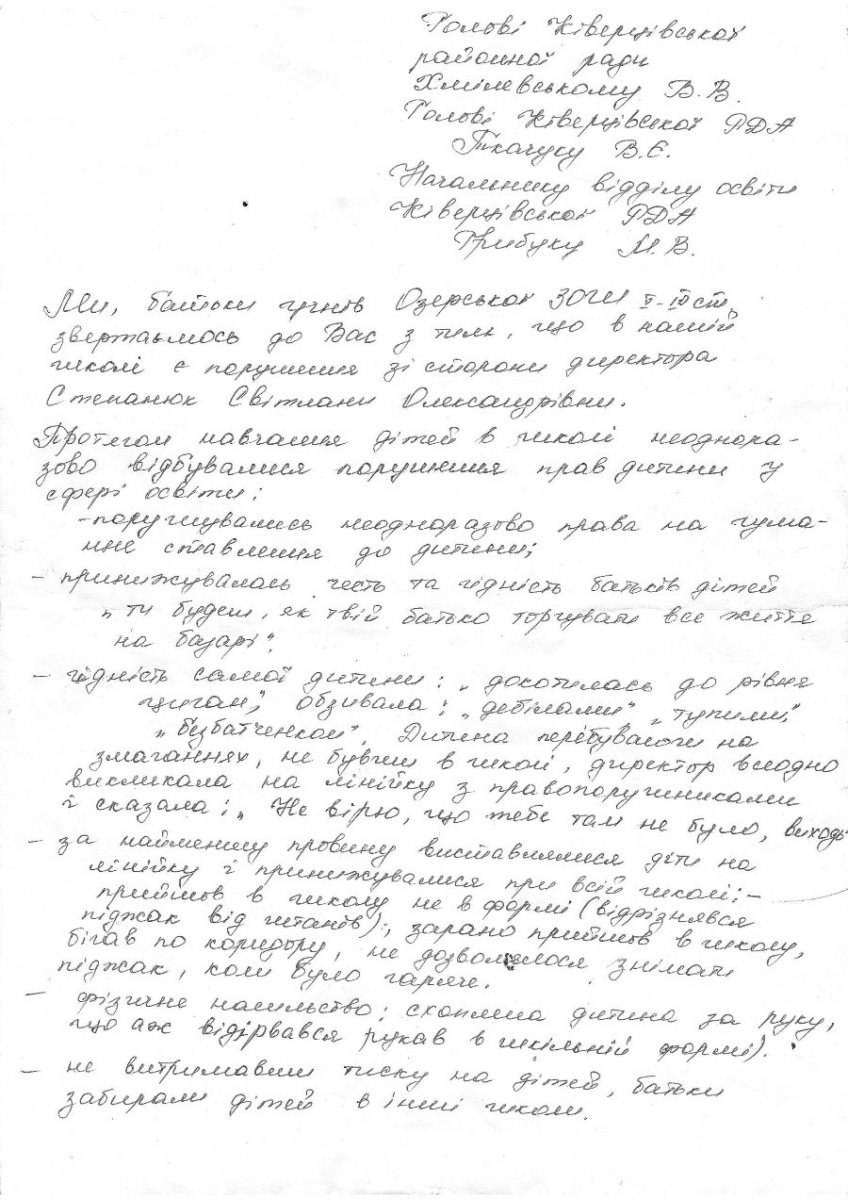 Голові Ківерцівської
районної ради
Хмілевському В.В.
Голові Ківерцівської РДА
Ткачуку В.Є.
Начальнику відділу освіти
Ківерцівської РДА
Грибуку М.В.
Ми, батьки учнів Озерської ЗОШ ІІ-ІІІ ст.
звертаємось до Вас з тим, що в нашій
школі є порушення зі сторони директора
Степанюк Світлани Олександрівни.
Протягом навчання дітей в школі неоднора-
зово відбувалися порушення прав дитини у
сфері освіти:
-порушувались неодноразово права на гума-
нне ставлення до дитини;
- принижувалась честь та гідність батьків дітей
„ти будеш, як твій батько торгувати все життя
на базарі".
- гідність самої дитини: „докотилась до рівня
циган", обзивала: „дебілами", „тупими",
„безбатченком". Дитина перебуваючи на
змаганнях, не бувши в школі, директор всеодно
викликала на лінійку з правопорушниками
і сказала: „Не вірю, що тебе там не було, виходь
- за найменшу провину виставлялися діти на
лінійку і принижувалися при всій школі: -
прийшов в школу не в формі (відрізнявся
піджак від штанів); зарано прийшов в школу,
бігав по коридору, не дозволялося знімати
піджак, коли було гаряче.
- фізичне насильство: схопила дитина за руку,
що аж відірвався рукав в шкільній формі).
- не витримавши тиску на дітей, батьки
забирали дітей в інші школи.